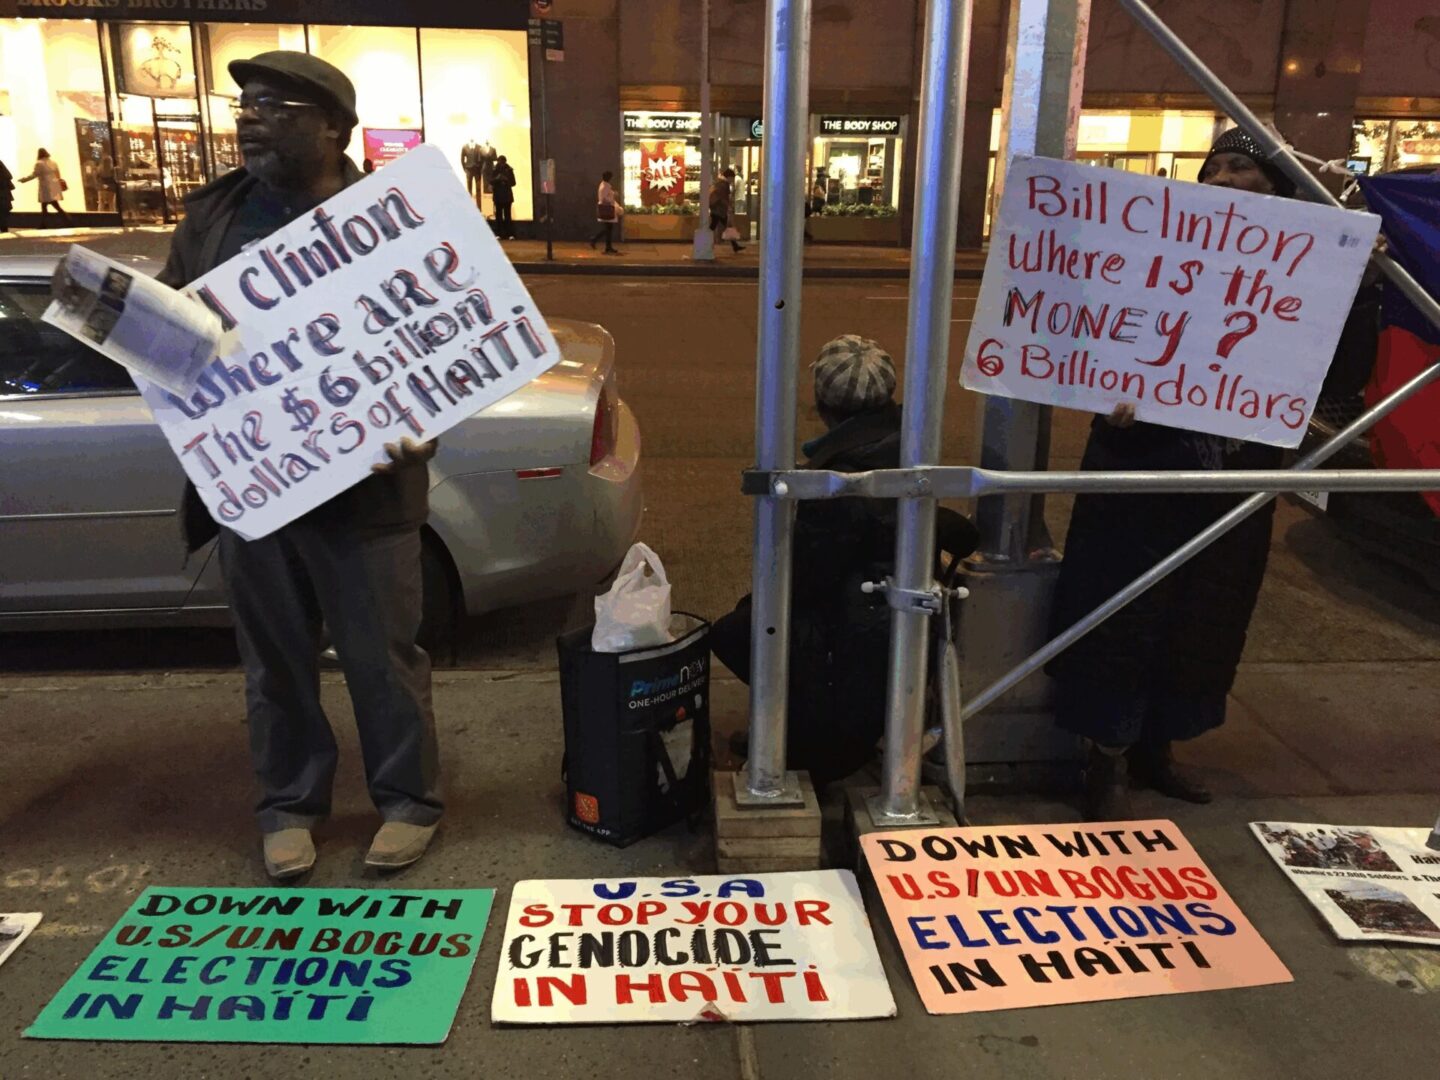 BROOKS BROTHERS
THE BODY SHOP
SALE
THE BODY SHOP
Clinton
Where are
The $6 billion
dollars of Haïti
Bill Clinton
Where is the
MONEY?
6 Billion dollars
Prime now
ONE-HOUR
GET THE APP
DOWN WITH
U.S/U.N BOGUS
ELECTIONS
IN HAÏTI
U.S.A
STOP YOUR
GENOCIDE
IN HAÏTI
DOWN WITH
U.S/UN BOGUS
ELECTIONS
IN HAÏTI